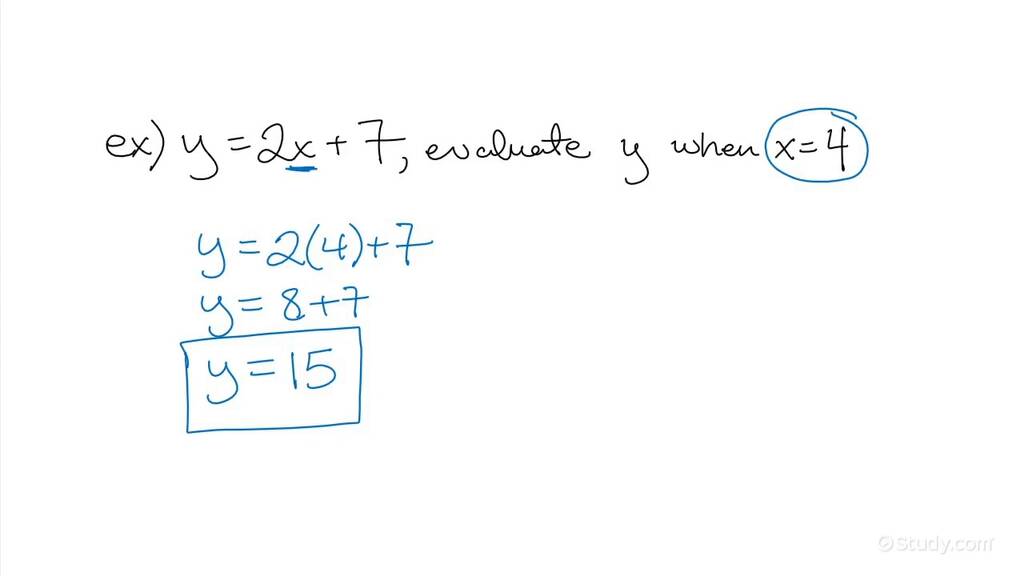 ex) y = 2x + 7, evaluate y when x = 4
y = 2(4) + 7
y = 8 + 7
y = 15
Study.com